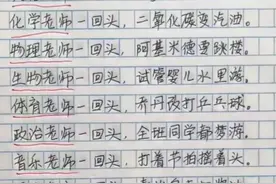 化学老师一回头，二氧化碳变汽油。
物理老师一回头，阿基米德要跳楼。
生物老师一回头，试管婴儿水里游。
体育老师一回头，乔丹改打乒乓球。
政治老师一回头，全班同学都梦游。
音乐老师一回头，打着节拍摇着头。